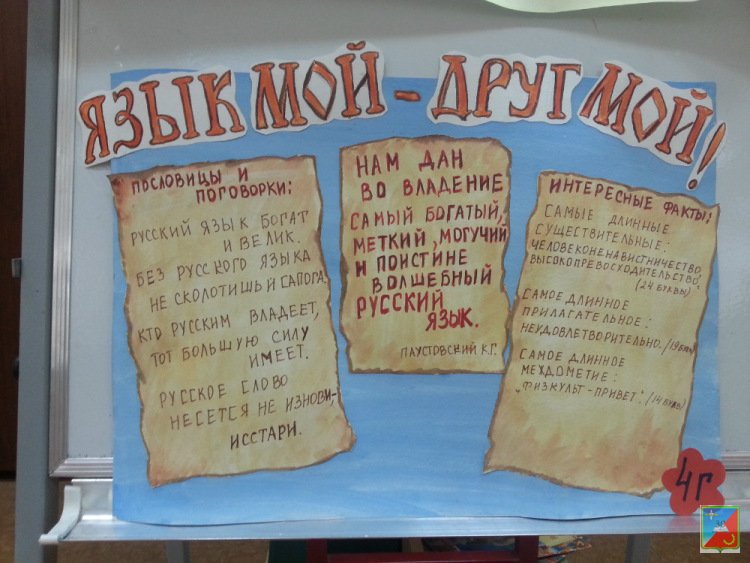 ЯЗЫК МОЙ - ДРУГ МОЙ!
ПОСЛОВИЦЫ И
ПОГОВОРКИ:
РУССКИЙ ЯЗЫК БОГАТ
И ВЕЛИК.
БЕЗ РУССКОГО ЯЗЫКА
НЕ СКОЛОТИШЬ И САПОГА.
КТО РУССКИМ ВЛАДЕЕТ,
ТОТ БОЛЬШУЮ СИЛУ
ИМЕЕТ.
РУССКОЕ СЛОВО
НЕСЕТСЯ НЕ ИЗНОВИ,-
ИССТАРИ.
НАМ ДАН
ВО ВЛАДЕНИЕ
САМЫЙ БОГАТЫЙ,
МЕТКИЙ, МОГУЧИЙ
И ПОИСТИНЕ
ВОЛШЕБНЫЙ
РУССКИЙ
ЯЗЫК.
ПАУСТОВСКИЙ К.Г.
ИНТЕРЕСНЫЕ ФАКТЫ:
САМЫЕ ДЛИННЫЕ
СУЩЕСТВИТЕЛЬНЫЕ:
ЧЕЛОВЕКОНЕНАВИСТНИЧЕСТВО,
ВЫСОКОПРЕВОСХОДИТЕЛЬСТВО.
(24 БУКВЫ)
САМОЕ ДЛИННОЕ
ПРИЛАГАТЕЛЬНОЕ:
НЕУДОВЛЕТВОРИТЕЛЬНО. (19 БУКВ)
САМОЕ ДЛИННОЕ
МЕЖДОМЕТИЕ:
„ФИЗКУЛЬТ-ПРИВЕТ". (14 БУКВ)
4Г
30